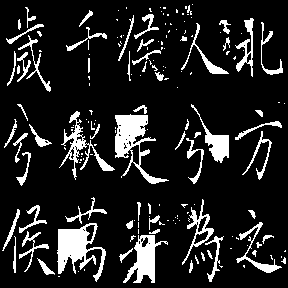 北方之
人兮為
侯是非
千秋萬
歲兮侯